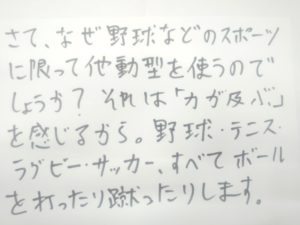 さて、なぜ野球などのスポーツ
に限って他動型を使うので
しょうか? それは「力が及ぶ」
を感じるから。野球・テニス・
ラグビー・サッカー、すべてボール
を打ったり蹴ったりします。